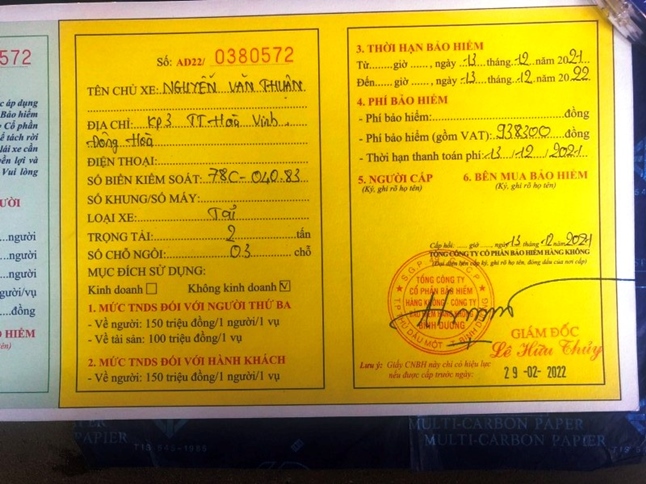 0572
c áp dụng
Bảo hiểm
y Cổ phần
ể tách rời
lái xe cần
yền lợi và
Vui lòng
ƯỜI
người
người
người
người/vụ
đồng
HIỂM
tên)
Số: AD22/ 0380572
TÊN CHỦ XE: NGUYỄN VĂN THUẬN
ĐỊA CHỈ: KP3 TT Hoà Vinh
Đông Hoà
ĐIỆN THOẠI:
SỐ BIỂN KIỂM SOÁT: 78C-040.83
SỐ KHUNG/SỐ MÁY:
LOẠI XE: Tải
TRỌNG TẢI: 2 tấn
SỐ CHỖ NGỒI: 03 chỗ
MỤC ĐÍCH SỬ DỤNG:
Kinh doanh Không kinh doanh V
1. MỨC TNDS ĐỐI VỚI NGƯỜI THỨ BA
- Về người: 150 triệu đồng/1 người/1 vụ
- Về tài sản: 100 triệu đồng/1 vụ
2. MỨC TNDS ĐỐI VỚI HÀNH KHÁCH
- Về người: 150 triệu đồng/1 người/1 vụ
3. THỜI HẠN BẢO HIỂM
Từ giờ, ngày 13 tháng 12 năm 2021
Đến giờ, ngày 13 tháng 12 năm 2022
4. PHÍ BẢO HIỂM
- Phí bảo hiểm: đồng
- Phí bảo hiểm (gồm VAT): 938300 đồng
- Thời hạn thanh toán phí: 13/12/2021
5. NGƯỜI CẤP 6. BÊN MUA BẢO HIỂM
(Ký, ghi rõ họ tên) (Ký, ghi rõ họ tên)
Cấp hồi giờ, ngày 13 tháng 12 năm 2021
TỔNG CÔNG TY CỔ PHẦN BẢO HIỂM HÀNG KHÔNG
(Đại diện liên cấp ký, ghi rõ họ tên, đóng dấu của nơi cấp)
TỔNG CÔNG TY
CỔ PHẦN BẢO HIỂM
HÀNG KHÔNG - CÔNG TY
BẢO HIỂM HÀNG KHÔNG
BÌNH DƯƠNG
TP. THỦ DẦU MỘT - T. BÌNH DƯƠNG
GIÁM ĐỐC
Lê Hữu Thúy
Lưu ý: Giấy CNBH này chỉ có hiệu lực
nếu được cấp trước ngày: 29-02-2022
MULTI-CARBON PAPER
MULTI-CARBON PAPER
PAPIER